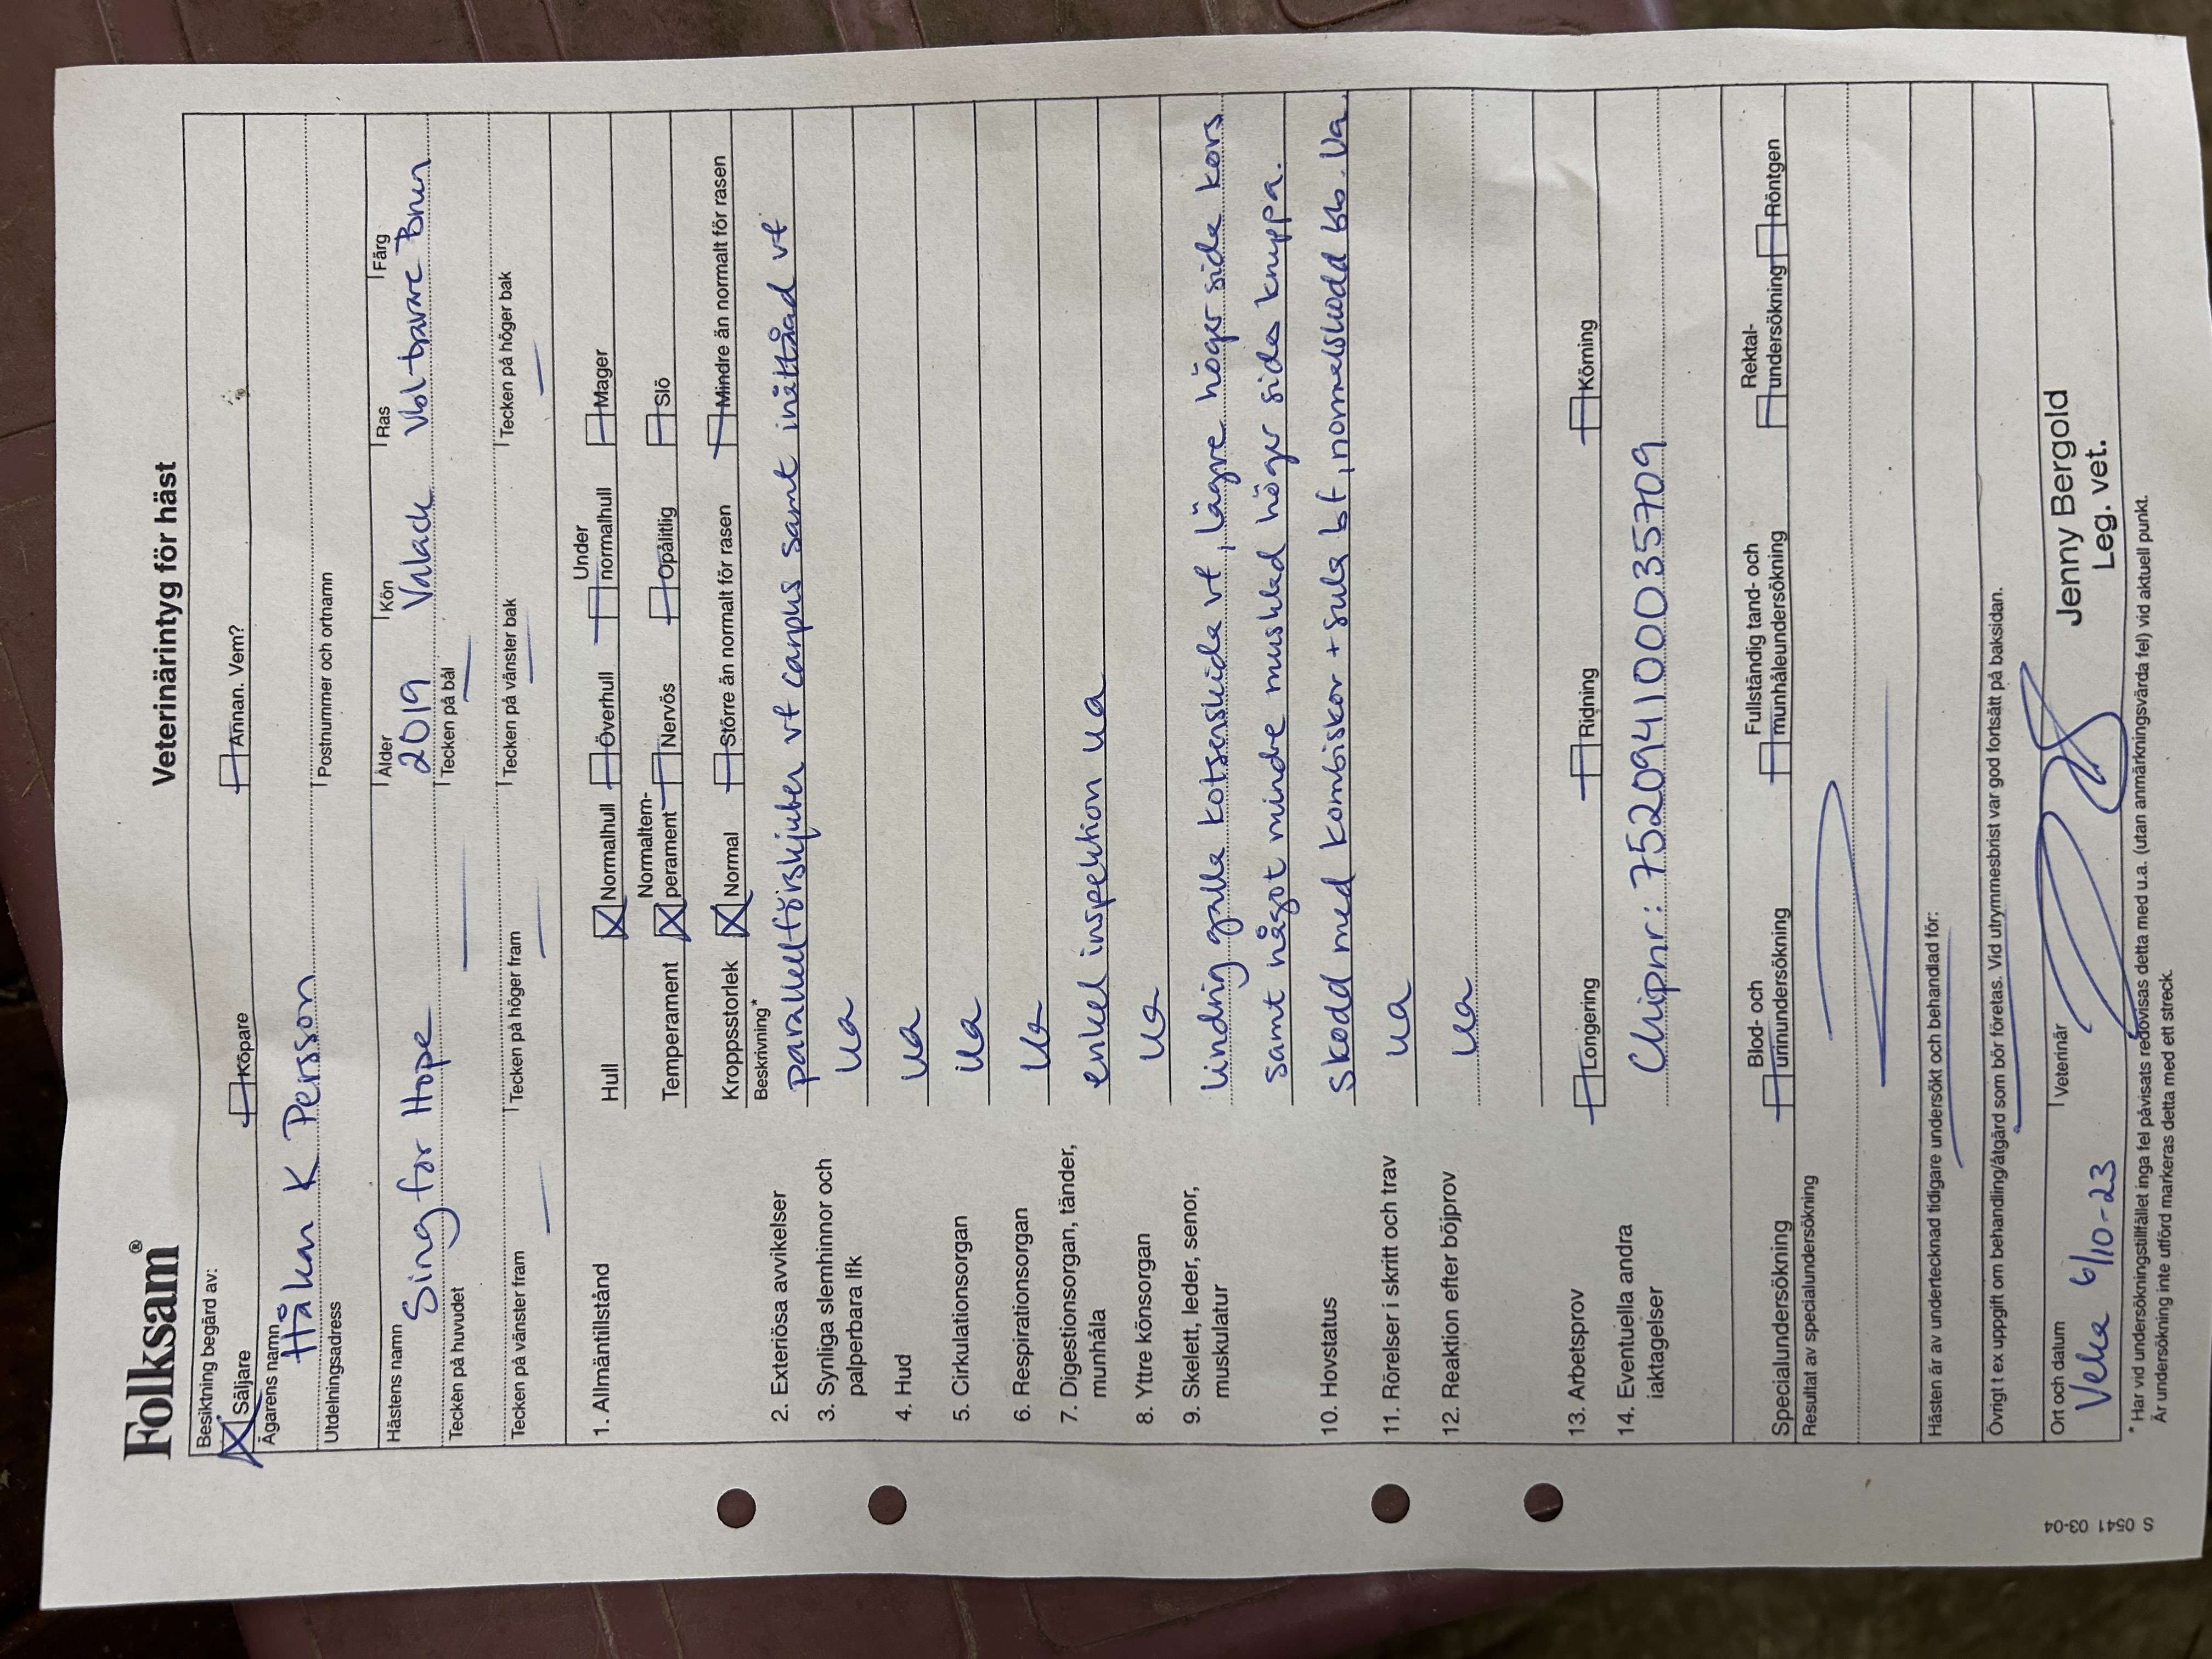 Folksam®
Veterinärintyg för häst
Besiktning begärd av:
Säljare Köpare Annan. Vem?
Ägarens namn
Håkan K Persson
Utdelningsadress Postnummer och ortnamn
Hästens namn Ålder Kön Ras Färg
Sing for Hope 2019 Valack Vbl travare Brun
Tecken på huvudet Tecken på bål
Tecken på vänster fram Tecken på höger fram Tecken på vänster bak Tecken på höger bak
1. Allmäntillstånd Hull Normalhull Överhull Under normalhull Mager
Temperament Normaltem-perament Nervös Opålitlig Slö
Kroppsstorlek Normal Större än normalt för rasen Mindre än normalt för rasen
Beskrivning*
2. Exteriösa avvikelser parallellförskjuten vf carpus samt inåttåad vf
3. Synliga slemhinnor och
palperbara lfk ua
4. Hud ua
5. Cirkulationsorgan ua
6. Respirationsorgan ua
7. Digestionsorgan, tänder,
munhåla enkel inspektion ua
8. Yttre könsorgan ua
9. Skelett, leder, senor, lindrig galla kotsenskida vf, lägre höger sida kors
muskulatur samt något mindre musklad höger sida kruppa.
10. Hovstatus Skodd med kombiskor + sula bf, normalskodd bb. Ua.
11. Rörelser i skritt och trav ua
12. Reaktion efter böjprov ua
13. Arbetsprov Longering Ridning Körning
14. Eventuella andra
iakttagelser Chipnr: 752094100035709
Specialundersökning Blod- och urinundersökning Fullständig tand- och munhåleundersökning Rektal-undersökning Röntgen
Resultat av specialundersökning
Hästen är av undertecknad tidigare undersökt och behandlad för:
Övrigt t ex uppgift om behandling/åtgärd som bör företas. Vid utrymmesbrist var god fortsätt på baksidan.
Ort och datum Veterinär
Veka 6/10-23 Jenny Bergold
Leg. vet.
* Har vid undersökningstillfället inga fel påvisats redovisas detta med u.a. (utan anmärkningsvärda fel) vid aktuell punkt.
Är undersökning inte utförd markeras detta med ett streck.
S 0541 03-04